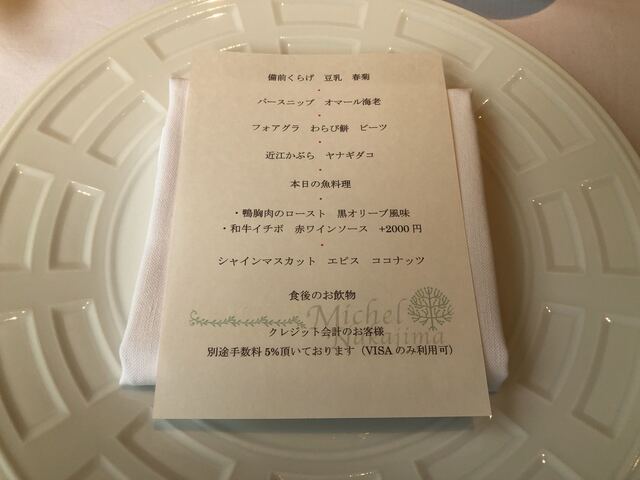 備前くらげ　豆乳　春菊
パースニップ　オマール海老
フォアグラ　わらび餅　ビーツ
近江かぶら　ヤナギダコ
本日の魚料理
・鴨胸肉のロースト　黒オリーブ風味
・和牛イチボ　赤ワインソース　+2000円
シャインマスカット　エピス　ココナッツ
食後のお飲物
Michel
Nakajima
クレジット会計のお客様
別途手数料5%頂いております（VISAのみ利用可）